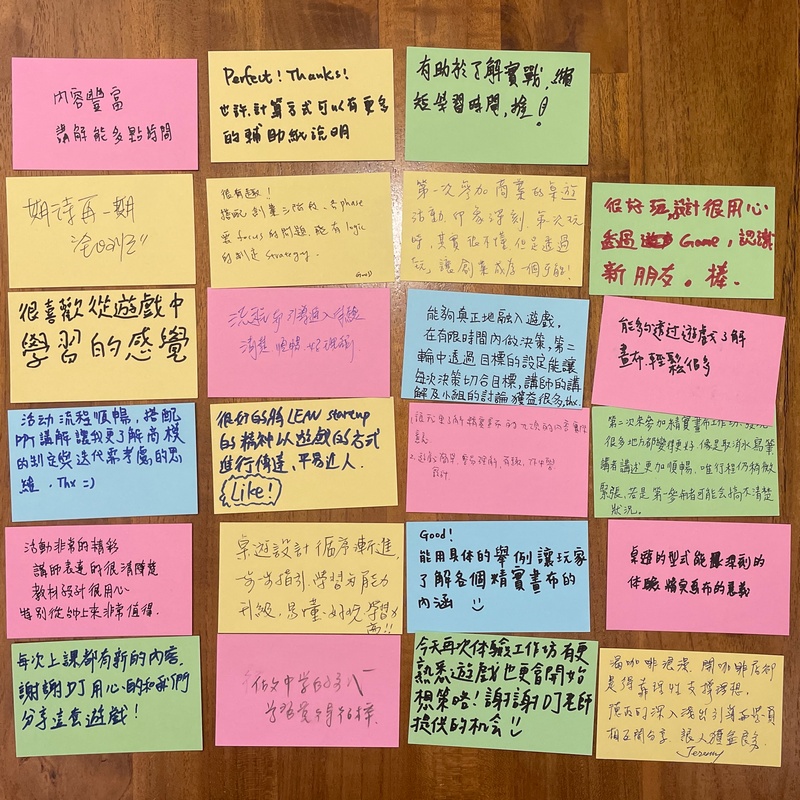 內容豐富
講解能多點時間
Perfect! Thanks!
也許計算方式可以有更多
的輔助紙說明
有助於了解實戰,縮
短學習時間,推!
期待再一期
很有趣!
搭配創業三階段,各phase
要focus的問題,能有logic
的制定strategy.
Good
第一次參加商業的桌遊
活動,印象深刻,第一次玩
時,其實很不懂但是透過
玩,讓創業成為一個可能!
很好玩,設計很用心
透過 Game,認識
新朋友。棒.
很喜歡從遊戲中
學習的感覺
流程
清楚順暢,好規劃
能夠真正地融入遊戲,
在有限時間內做決策,第二
輪中透過目標的設定能讓
每次決策切合目標,講師的講
解及小組的討論獲益很多,thx.
能夠透过遊戲了解
畫布.輕鬆很多
活動流程順暢,搭配
PPT講解讓我更了解商模
的制定與迭代需考慮的思
維. Thx =)
很好的將LEAN startup
的精神以遊戲的方式
進行傳達,平易近人.
Like!
1.
2.
第二次來參加精實畫布工作坊,發現
很多地方都變更好,像是取消水寫筆
講者講述更加順暢,唯行程仍稍微
緊張,若是第一次參與者可能會搞不清楚
狀況。
活動非常的精彩
講師表達的很清陣楚
教材設計很用心
特別從台中上來非常值得.
桌遊設計循序漸進,
一步一步指引,學習
升級,易懂、好玩、學習力
高!!
Good!
能用具体的舉例讓玩家
了解各個精實畫布的
內涵
桌遊的型式能最深刻的
体驗精實畫布的意義
每次上課都有新的內容,
謝謝DJ用心的和我們
分享這套遊戲!
做中學的方式
學習覺得很棒.
今天再次体驗工作坊有更
熟悉遊戲也更會開始
想策略!謝謝DJ老師
提供的机会
喝咖啡浪漫,開咖啡店卻
是得靠理性支撐理想,
顏老師深入淺出引導各學員
相互間分享,讓人獲益良多.
Jeremy